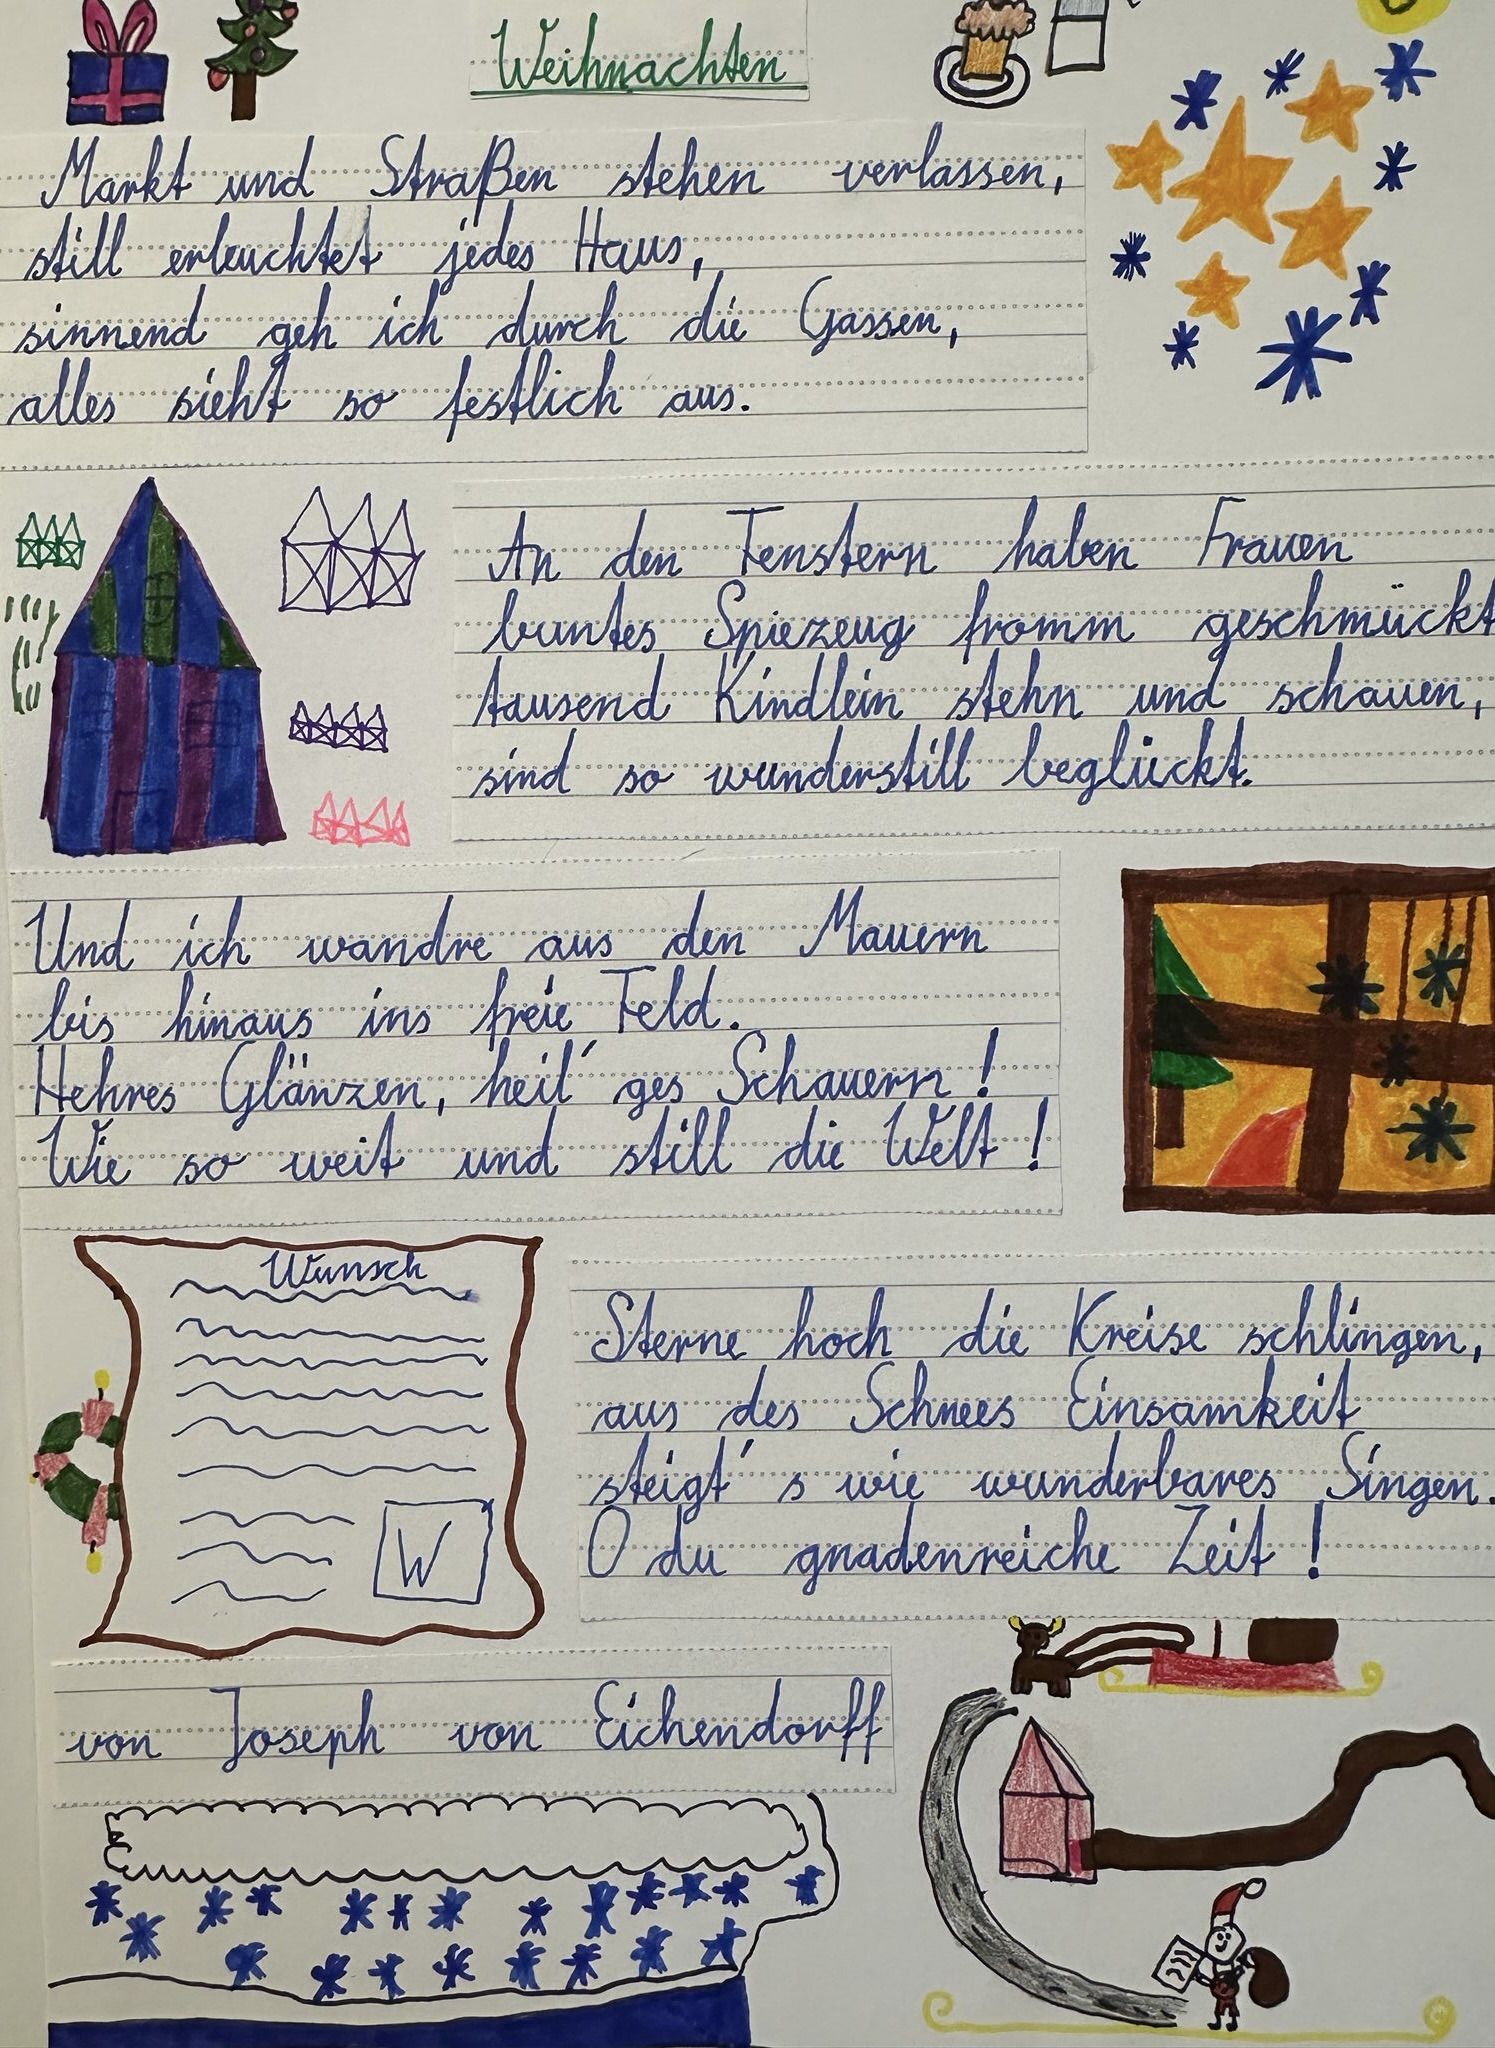 Weihnachten
Markt und Straßen stehen verlassen,
still erleuchtet jedes Haus,
sinnend geh ich durch die Gassen,
alles sieht so festlich aus.
An den Fenstern haben Frauen
buntes Spiezeug fromm geschmückt
tausend Kindlein stehn und schauen,
sind so wunderstill beglückt.
Und ich wandre aus den Mauern
bis hinaus ins freie Feld.
Hehres Glänzen, heil´ges Schauern!
Wie so weit und still die Welt!
Wunsch
W
Sterne hoch die Kreise schlingen,
aus des Schnees Einsamkeit
steigt´s wie wunderbares Singen.
O du gnadenreiche Zeit!
von Joseph von Eichendorff